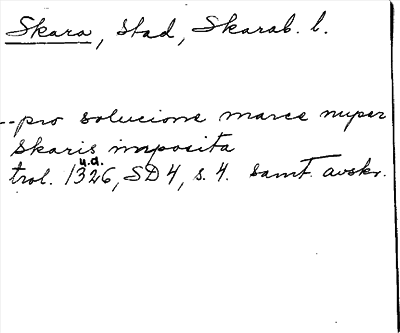 Skara, Stad, Skarab. l.
--pro solucione marce nuper
Skaris imposita
u.d.
trol. 1326, SD 4, s. 4. samt. avskr.